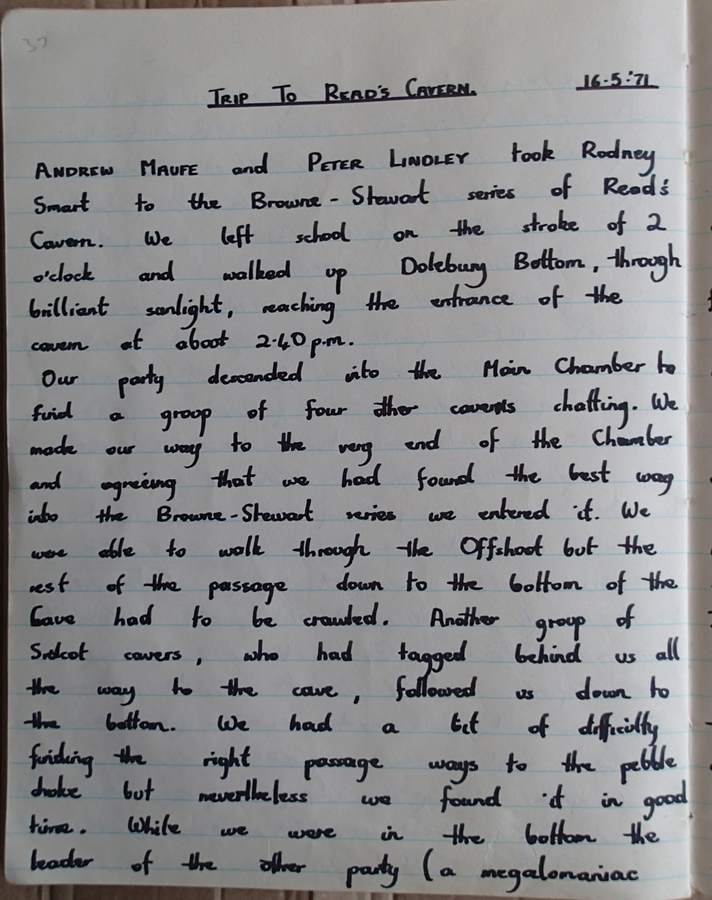 37
TRIP TO READ'S CAVERN. 16-5-'71
ANDREW MAUFE and PETER LINDLEY took Rodney
Smart to the Browne-Stewart series of Read's
Cavern. We left school on the stroke of 2
o'clock and walked up Dolebury Bottom, through
brilliant sunlight, reaching the entrance of the
cavern at about 2.40 p.m.
Our party descended into the Main Chamber to
find a group of four other cavers chatting. We
made our way to the very end of the Chamber
and agreeing that we had found the best way
into the Browne-Stewart series we entered it. We
were able to walk through the Offshoot but the
rest of the passage down to the bottom of the
Cave had to be crawled. Another group of
Sidcot cavers, who had tagged behind us all
the way to the cave, followed us down to
the bottom. We had a bit of difficulty
finding the right passage ways to the pebble
choke but nevertheless we found it in good
time. While we were in the bottom the
leader of the other party (a megalomaniac